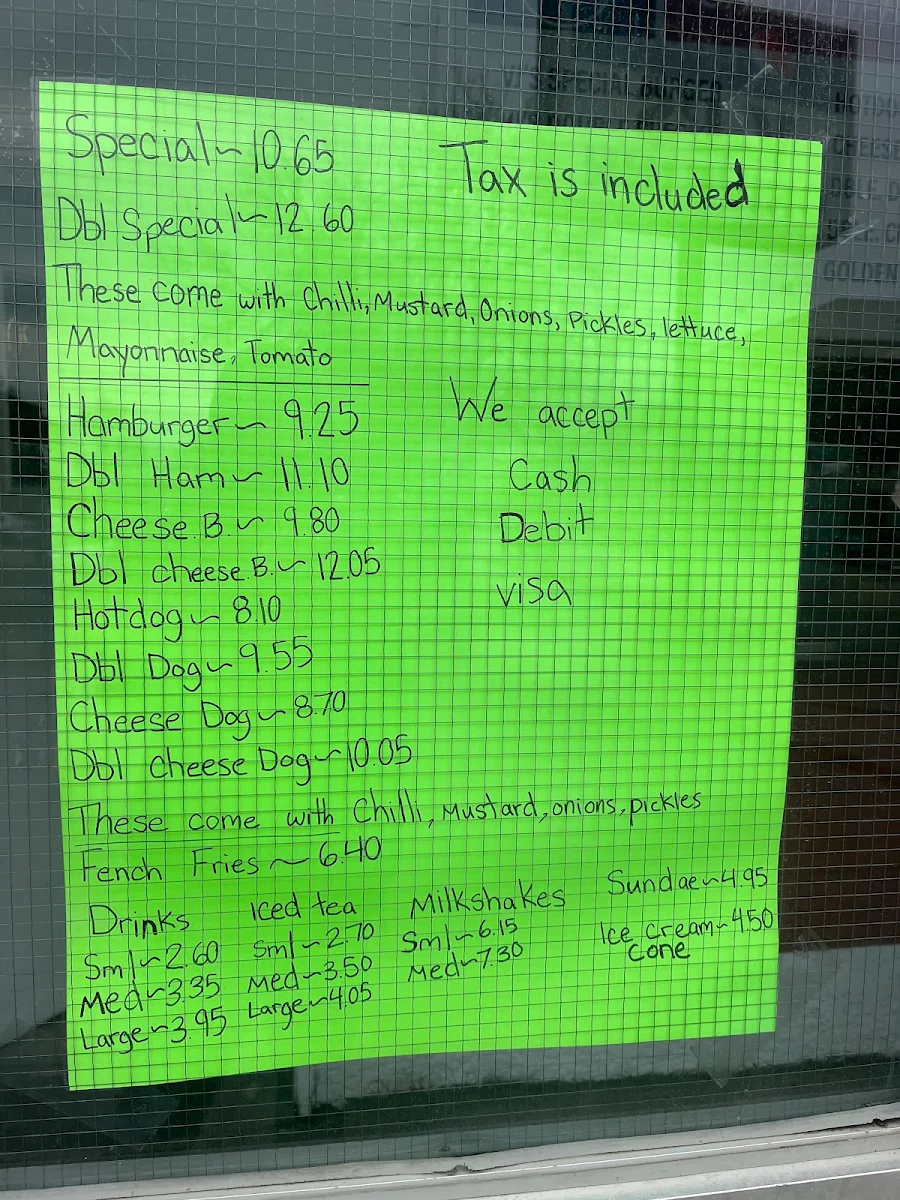 Special ~ 10.65
Tax is included
Dbl Special ~ 12.60
These come with Chilli, Mustard, Onions, Pickles, lettuce,
Mayonnaise, Tomato
Hamburger ~ 9.25
Dbl Ham ~ 11.10
Cheese B. ~ 9.80
Dbl cheese B. ~ 12.05
Hotdog ~ 8.10
Dbl Dog ~ 9.55
Cheese Dog ~ 8.70
Dbl cheese Dog ~ 10.05
We accept
Cash
Debit
visa
These come with Chilli, Mustard, onions, pickles
Fench Fries ~ 6.40
Drinks
Sml ~ 2.60
Med ~ 3.35
Large ~ 3.95
Iced tea
Sml ~ 2.70
Med ~ 3.50
Large ~ 4.05
Milkshakes
Sml ~ 6.15
Med ~ 7.30
Sundae ~ 4.95
Ice cream ~ 4.50
Cone
GOLDEN